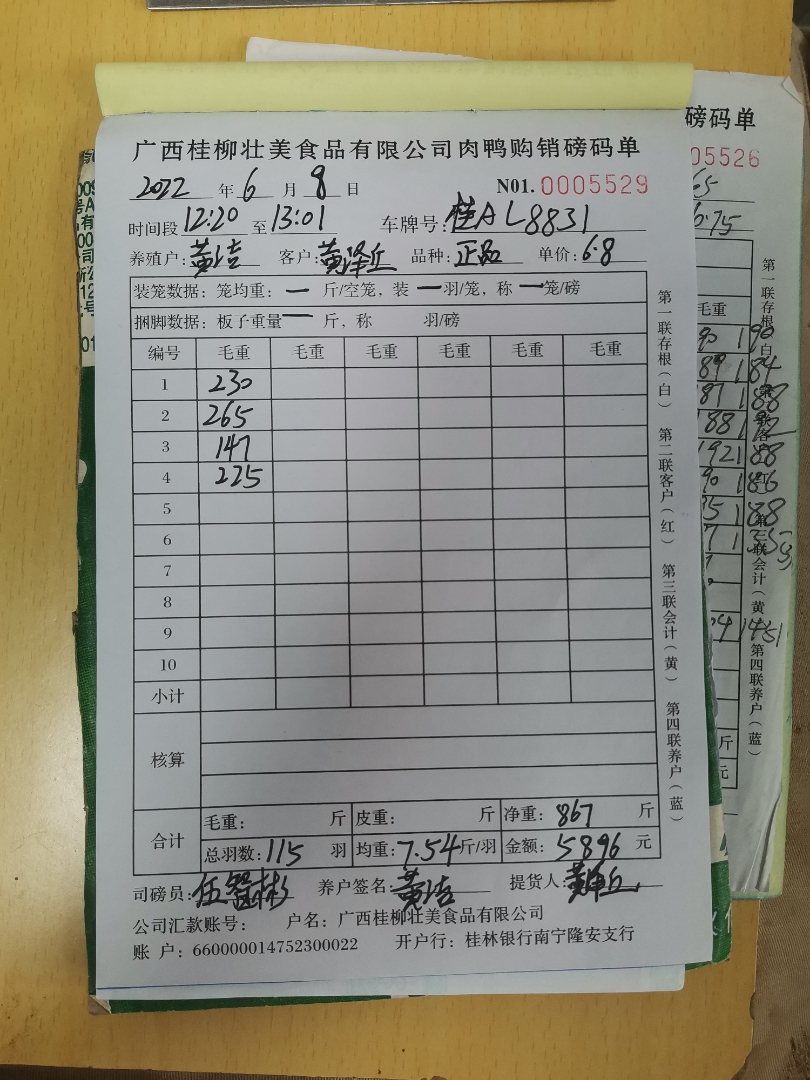 广西桂柳壮美食品有限公司肉鸭购销磅码单
2022 年 6 月 8 日 N01. 0005529
时间段 12:20 至 13:01 车牌号: 桂A L8831
养殖户: 黄洁 客户: 黄泽丘 品种: 正品 单价: 6.8
装笼数据: 笼均重: — 斤/空笼, 装 — 羽/笼, 称 — 笼/磅
捆脚数据: 板子重量 — 斤, 称 羽/磅
编号 毛重 毛重 毛重 毛重 毛重 毛重
1 230
2 265
3 147
4 225
5
6
7
8
9
10
小计
核算
合计
毛重: 斤 皮重: 斤 净重: 867 斤
总羽数: 115 羽 均重: 7.54 斤/羽 金额: 5896 元
司磅员: 伍智彬 养户签名: 黄洁 提货人: 黄泽丘
公司汇款账号: 户名: 广西桂柳壮美食品有限公司
账 户: 660000014752300022 开户行: 桂林银行南宁隆安支行
第一联存根(白) 第二联客户(红) 第三联会计(黄) 第四联养户(蓝)
磅码单
05526
65
6.75
毛重
90 190
89 184
187 188
188
192 188
90 186
75 188
04 1451
斤
元
第一联存根(白)
第三联会计(黄)
第四联养户(蓝)